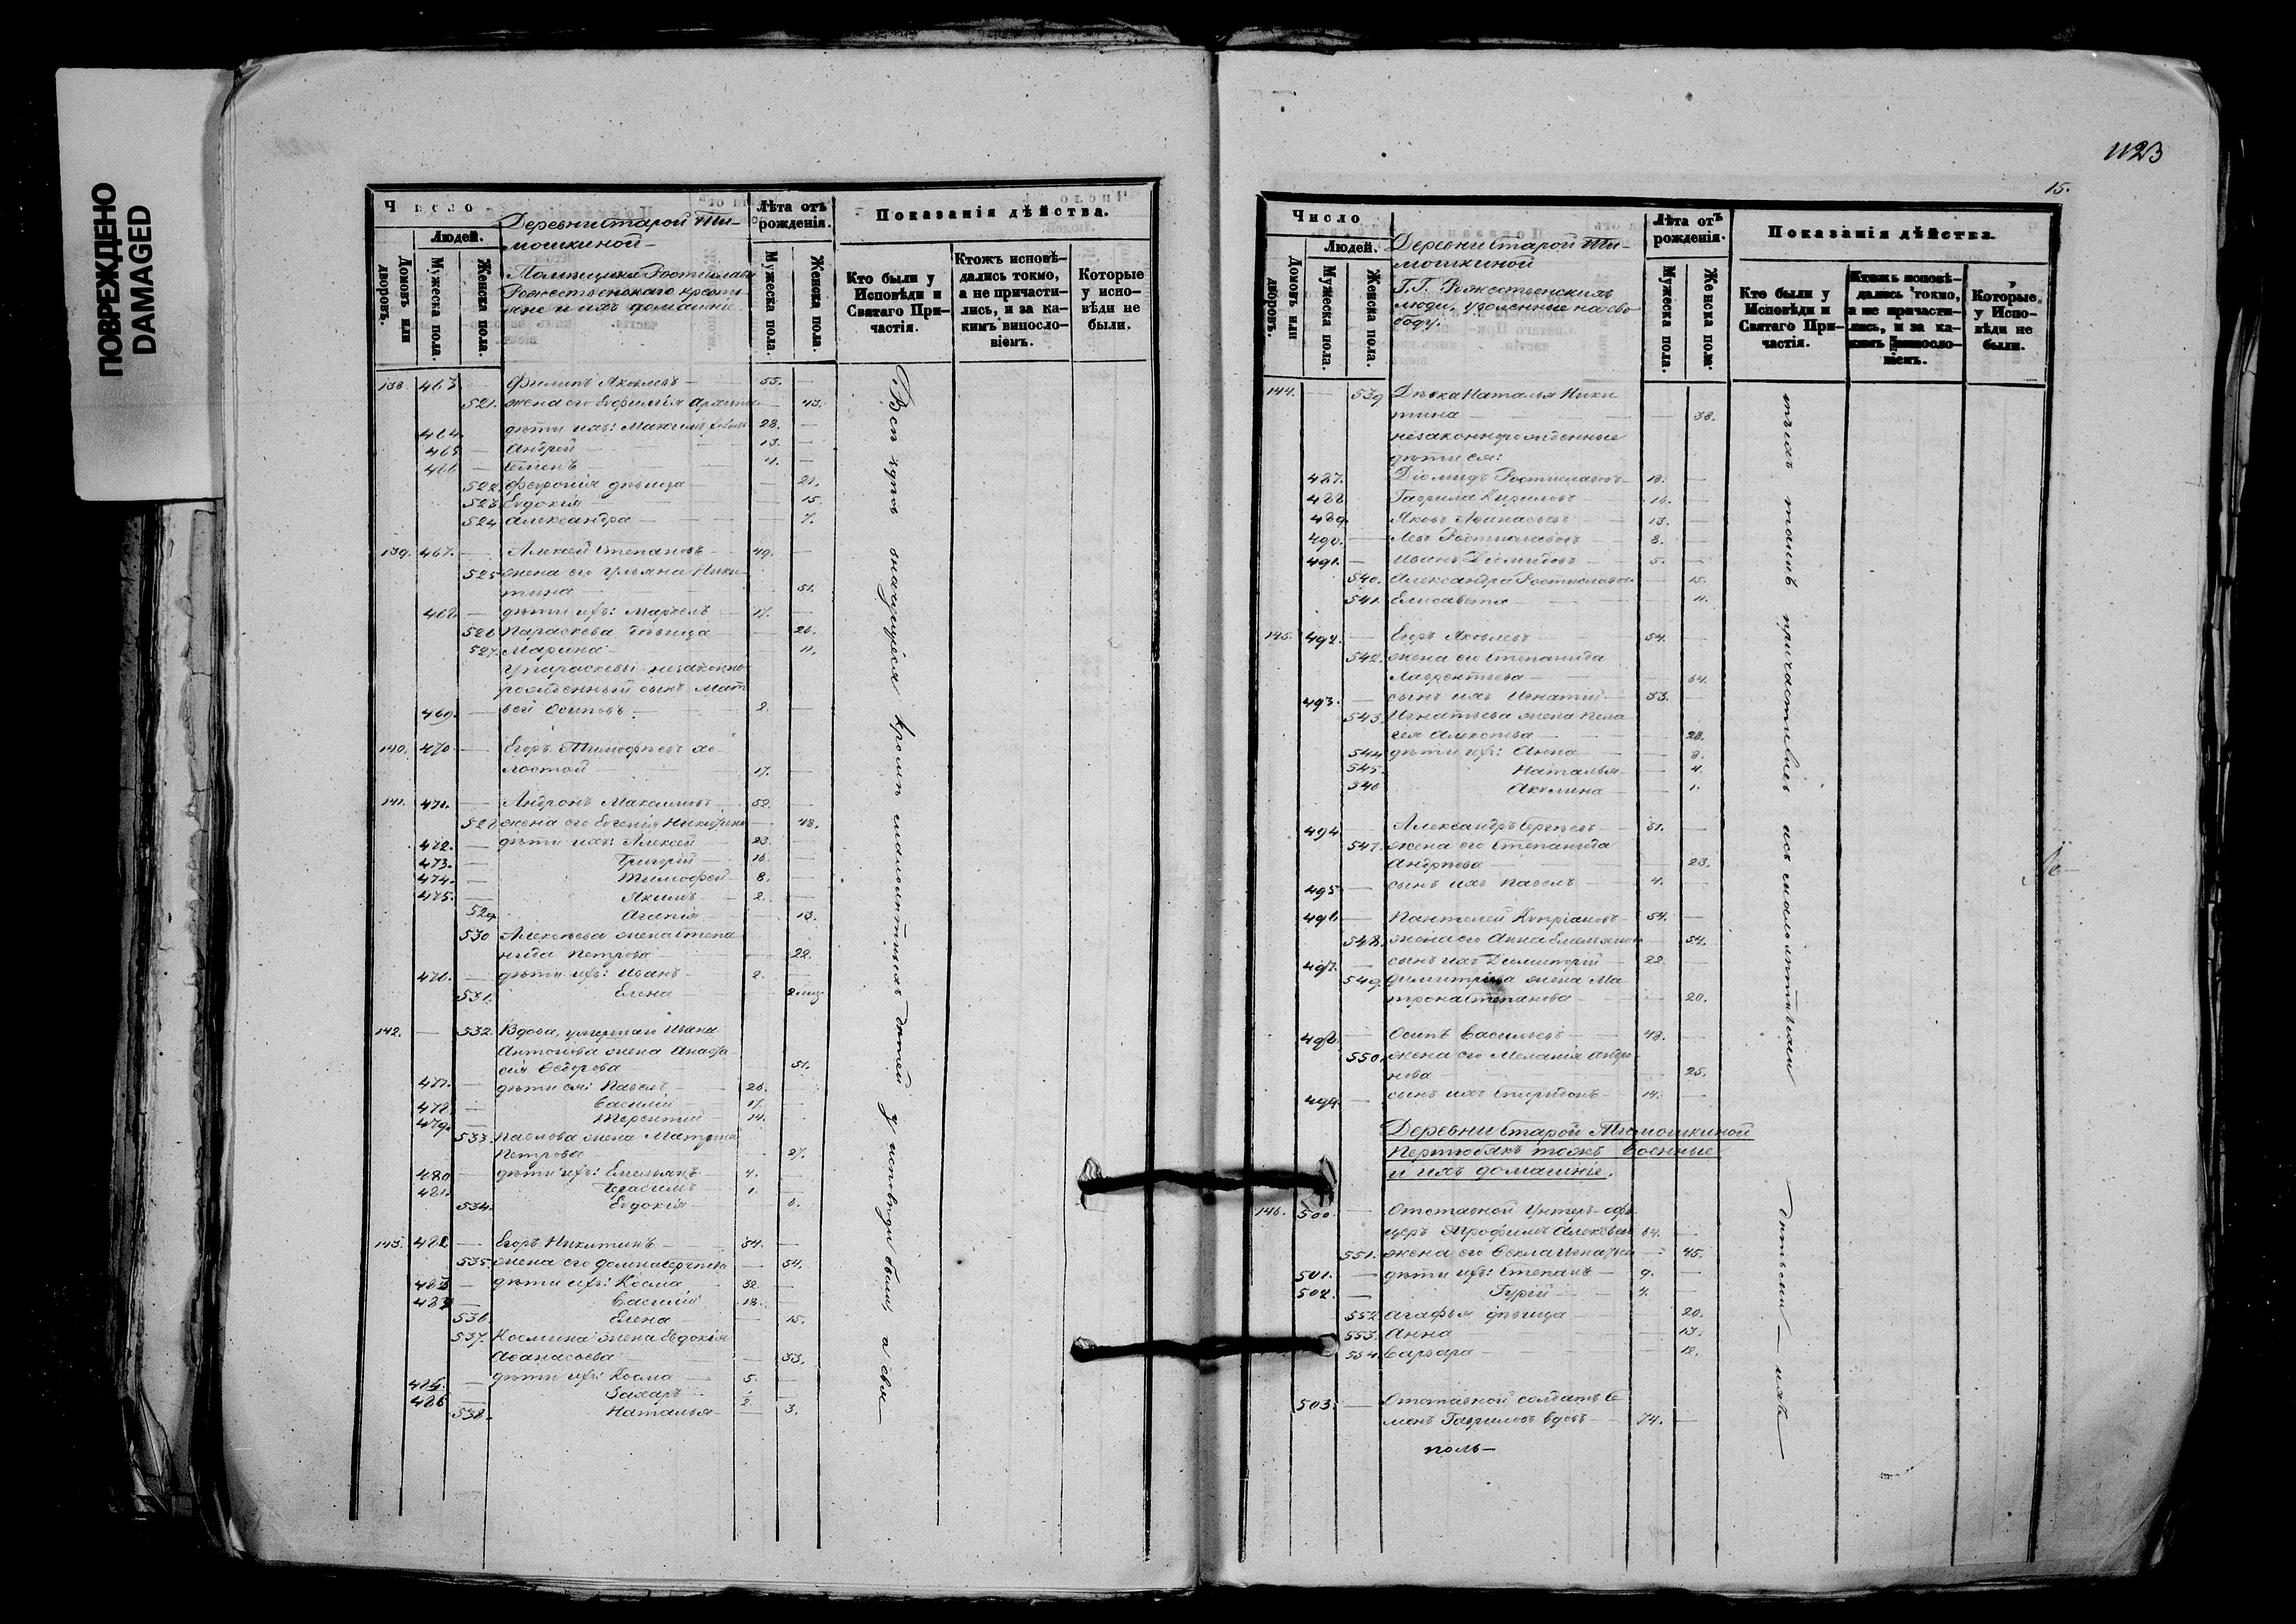 ПОВРЕЖДЕНО
DAMAGED
Число
Людей.
Домовъ или дворовъ.
Мужеска пола.
Женска пола.
Деревни Старой Ти-
мошкиной
Помѣщика Ростислава
Рожественскаго крестья
не и ихъ домашніе.
Лѣта отъ рожденія.
Мужеска пола.
Женска пола.
Показанія дѣйства.
Кто были у Исповѣди и Святаго При-частія.
Ктожъ исповѣ-дались токмо, а не причасти-лись, и за ка-кимъ винословіемъ.
Которые у испо-вѣди не были.
138. 463 — Филипъ Яковлевъ — 55. —
521. жена его Евфимія 43.
464. дѣти ихъ: Максимъ 28. —
465 — Андрей — 13. —
466 — Семенъ 11. —
522. Феѳронія дѣвица — 21.
523 Евдокія — 15.
524 Александра — 7.
139. 467. — Алексѣй Степановъ — 49. —
525 жена его Ульяна Ники-
тина — 51.
468 — дѣти ихъ: Маркелъ 17. —
526 Параскева дѣвица — 26.
527. Марина — 11.
У Параскевы незаконно
рожденный сынъ Мат
469. — вей Осиповъ. — 2. —
140. 470 — Егоръ Тимофѣевъ хо-
лостой — 17. —
141. 471. — Андронъ Максимовъ 52. —
528 жена его Евгенія Никифорова — 48.
472. — дѣти ихъ: Алексѣй 23. —
473. — Григорій — 16. —
474. — Тимофей — 8. —
475. — Якимъ — 2. —
529 Агапія — 13.
530 Алексѣева жена Степа
нида Петрова — 22.
476. — дѣти ихъ: Иванъ — 2. —
531. Елена — 2 мец.
142. — 532. Вдова, умершаго Ивана
Антонова жена Анаста-
сія Ѳедорова — 51.
477. — дѣти ея: Павелъ — 26. —
478. — Василій — 17. —
479. — Терентій — 14. —
533. Павлова жена Матрона
Петрова — 27.
480 — дѣти ихъ: Емельянъ — 4. —
481. Герасимъ — 1. —
534. Евдокія — 6.
143. 482 — Егоръ Никитинъ — 54. —
535. жена его Домна Сергѣева — 54.
483 — дѣти ихъ: Косма — 32. —
484 — Василій 18. —
536 Елена — 15.
537. Космина жена Евдокія
Аѳанасьева — 33.
485. — дѣти ихъ: Косма — 5. —
486 — Захаръ ½ —
538. Наталья — 3.
Всѣ здѣсь значущіеся кромѣ малолѣтнихъ дѣтей у исповѣди были, а свя-
1123
15.
Число
Людей.
Домовъ или дворовъ.
Мужеска пола.
Женска пола.
Деревни Старой Ти-
мошкиной
Г.Г. Рожественскихъ
люди, уволенные на сво
боду.
Лѣта отъ рожденія.
Мужеска пола
Женска пола
Показанія дѣйства.
Кто были у Исповѣди и Святаго При-частія.
Ктожъ исповѣ-дались токмо, а не причасти-лись, и за ка-кимъ винословіемъ.
Которые у Испо-вѣди не были.
144. — 539 Дѣвка Наталья Ники
тина — 38.
незаконнорожденные
дѣти ея:
487. Діомидъ Ростиславовъ — 18. —
488 Гаврила Кириловъ 16. —
489 Яковъ Аѳанасьевъ 13. —
490. — Левъ Ростиславовъ 8. —
491. — Иванъ Діомидовъ — 5. —
540. Александра Ростиславова — 15.
541. Елисавета — 11.
145. 492. — Егоръ Яковлевъ 54. —
542. жена его Степанида
Лаврентьева — 54.
493. — сынъ ихъ Игнатій — 33. —
543. Игнатьева жена Пела
гея Алексѣева — 28.
544 дѣти ихъ: Анна — 8.
545. Наталья — 4.
546 Акулина — 1.
494 Александръ Сергѣевъ — 31. —
547. жена его Степанида
Андрѣева — 23.
495 — сынъ ихъ Павелъ — 4. —
496 — Пантелей Кипріановъ — 54. —
548. жена его Анна Емельянова — 54.
497. — сынъ ихъ Димитрій — 22. —
549. Димитріева жена Ма-
трона Степанова — 20.
498. — Осипъ Васильевъ — 48. —
550. жена его Меланія Андро-
нова — 25.
499 — сынъ ихъ Спиридонъ — 14. —
Деревни Старой Тимошкиной
тожъ Военные
и ихъ домашніе.
146. 500. — Отставной Унтеръ-офи
церъ Трофимъ Алексѣевъ 64. —
551. жена его Ѳекла Игнатьева — 45.
501. — дѣти ихъ: Степанъ — 9. —
502. — Гурій — 4. —
552 Агафья дѣвица — 20.
553. Анна — 13.
554. Варвара — 12.
503. — Отставной солдатъ Се
менъ Гавриловъ вдовъ — 74. —
поль—
тыхъ таинъ причастились и съ малолѣтными дѣтьми —